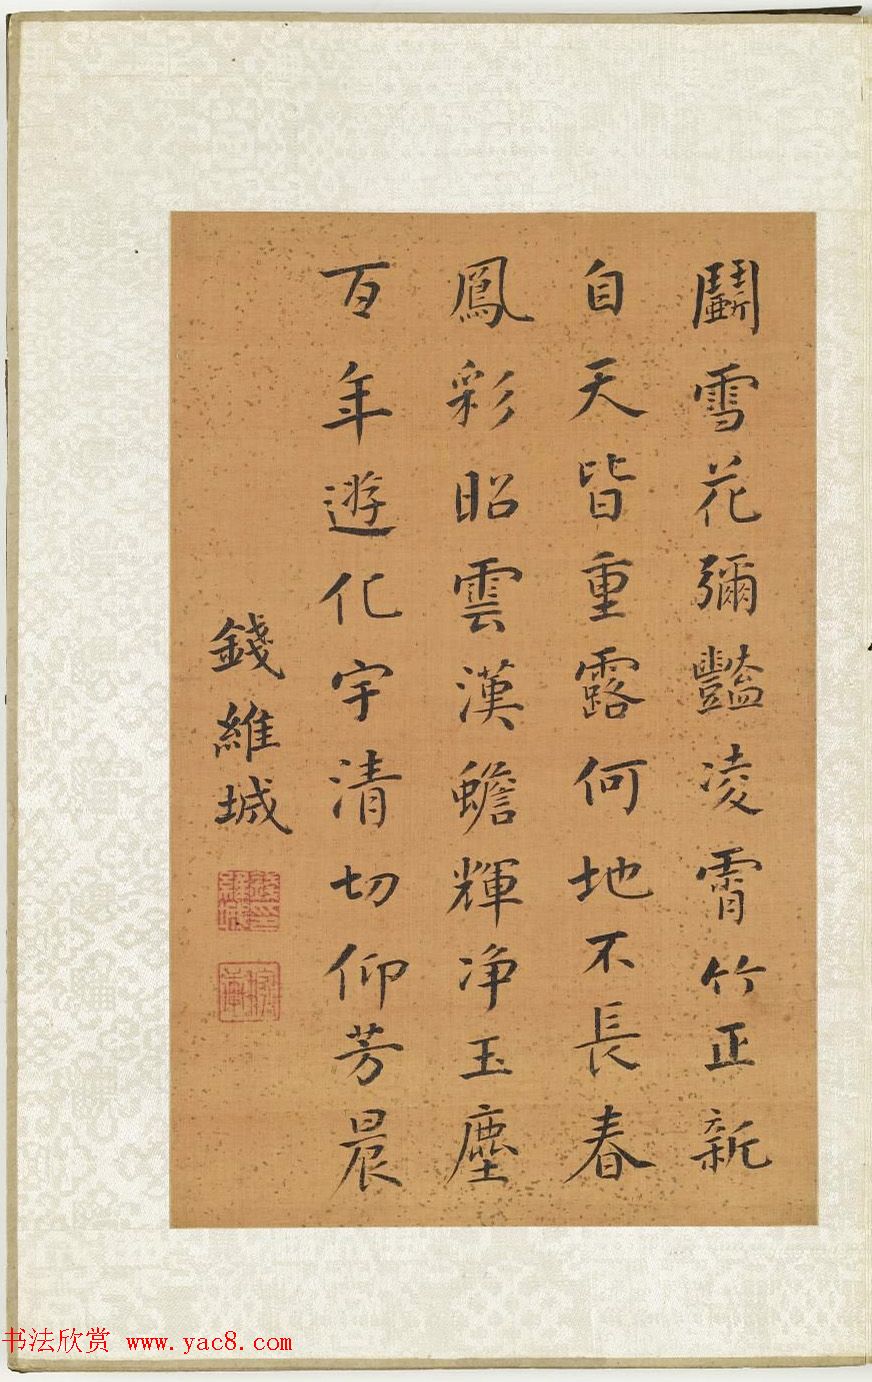 鬭雪花彌豔凌霄竹正新
自天皆重露何地不長春
鳳彩昭雲漢蟾輝净玉塵
百年遊化宇清切仰芳晨
錢維城
书法欣赏 www.yac8.com